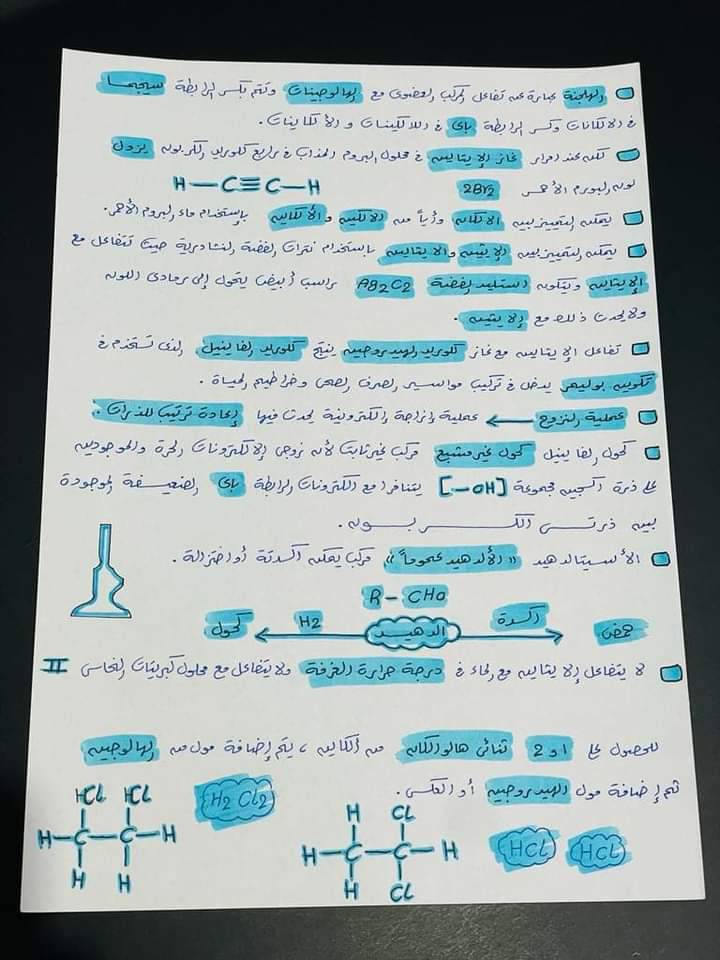 الهلجنة عبارة عن تفاعل المركب العضوي مع الهالوجينات وتتم بكسر الرابطة سيجما
في الالكانات وكسر الرابطة باى في الالكينات والألكاينات.
لكن عند امرار غاز الإيثاين في محلول البروم المذاب في رابع كلوريد الكربون يزول
لون البروم الأحمر 2Br2 H—C≡C—H
يمكن التمييز بين الالكان وأياً من الالكين والألكاين بإستخدام ماء البروم الأحمر.
يمكن التمييز بين الإيثين والايثاين باستخدام نترات الفضة النشادرية حيث تتفاعل مع
الإيثاين ويتكون استيليد الفضة Ag2C2 راسب أبيض يتحول إلى رمادى اللون
ولا يحدث ذلك مع إلايثين.
تفاعل الإيثاين مع غاز كلوريد الهيدروجين ينتج كلوريد الفاينيل، الذى تستخدم في
تكوين بوليمر يدخل في تركيب مواسير الصرف الصحى وخراطيم المياة.
عملية النزوح ← عملية إزاحة إلكترونية يحدث فيها إعادة ترتيب للذرات.
كحول الفاينيل كحول غير مشبع مركب غير ثابت لأن زوجى الإلكترونات الحرة والموجودين
على ذرة أكسجين مجموعة [-OH] يتنافرا مع الكترونات الرابطة باى الضعيفة الموجودة
بين ذرتى الكربون.
الأسيتالدهيد "الألدهيد عموماً" مركب يمكن أكسدتة أو اختزالة.
R-CHO
كحول H2 الدهيد أكسدة حمض
لا يتفاعل إلايثاين مع الماء في درجة حرارة الغرفة ولا يتفاعل مع محلول كبريتات النحاس II
للحصول على 1و2 ثنائى هالو الكان من ألكاين، يتم إضافة مول من الهالوجين
ثم إضافة مول الهيدروجين أو العكس.
H2 Cl2
HCl HCl
H—C—C—H
H H
H Cl
H—C—C—H
H Cl
HCl HCl